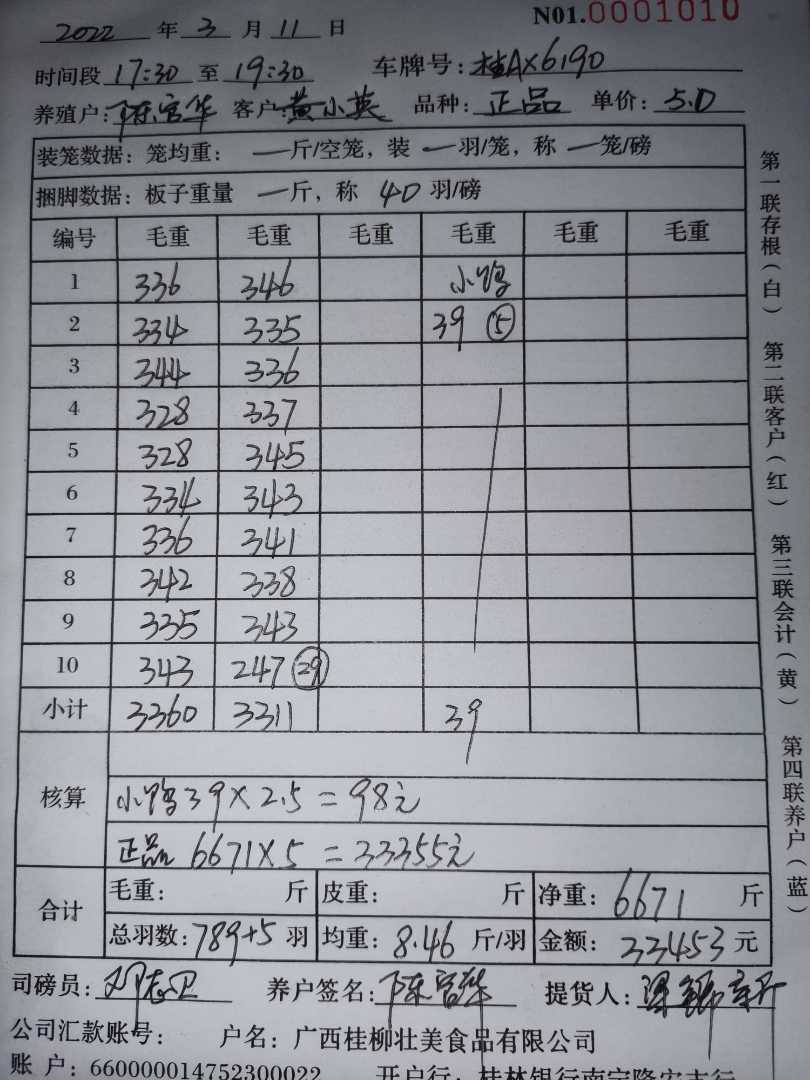 N01.0001010
2022 年 3 月 11 日
时间段 17:30 至 19:30 车牌号: 桂AX6190
养殖户: 陈官华 客户: 黄小英 品种: 正品 单价: 5.0
装笼数据: 笼均重: 一斤/空笼, 装 一羽/笼, 称 一笼/磅
捆脚数据: 板子重量 一斤, 称 40 羽/磅
编号 毛重 毛重 毛重 毛重 毛重 毛重
1 336 346 小鸭
2 334 335 39 ⑤
3 344 336
4 328 337
5 328 345
6 334 343
7 336 341
8 342 338
9 335 343
10 343 247 (29)
小计 3360 3311 39
核算
小鸭39×2.5=98元
正品 6671×5=33355元
合计
毛重: 斤 皮重: 斤 净重: 6671 斤
总羽数: 789+5 羽 均重: 8.46 斤/羽 金额: 33453 元
司磅员: 养户签名: 陈官华 提货人:
公司汇款账号: 户名: 广西桂柳壮美食品有限公司
账 户: 660000014752300022 开户行: 桂林银行南宁隆安支行
第一联存根(白) 第二联客户(红) 第三联会计(黄) 第四联养户(蓝)